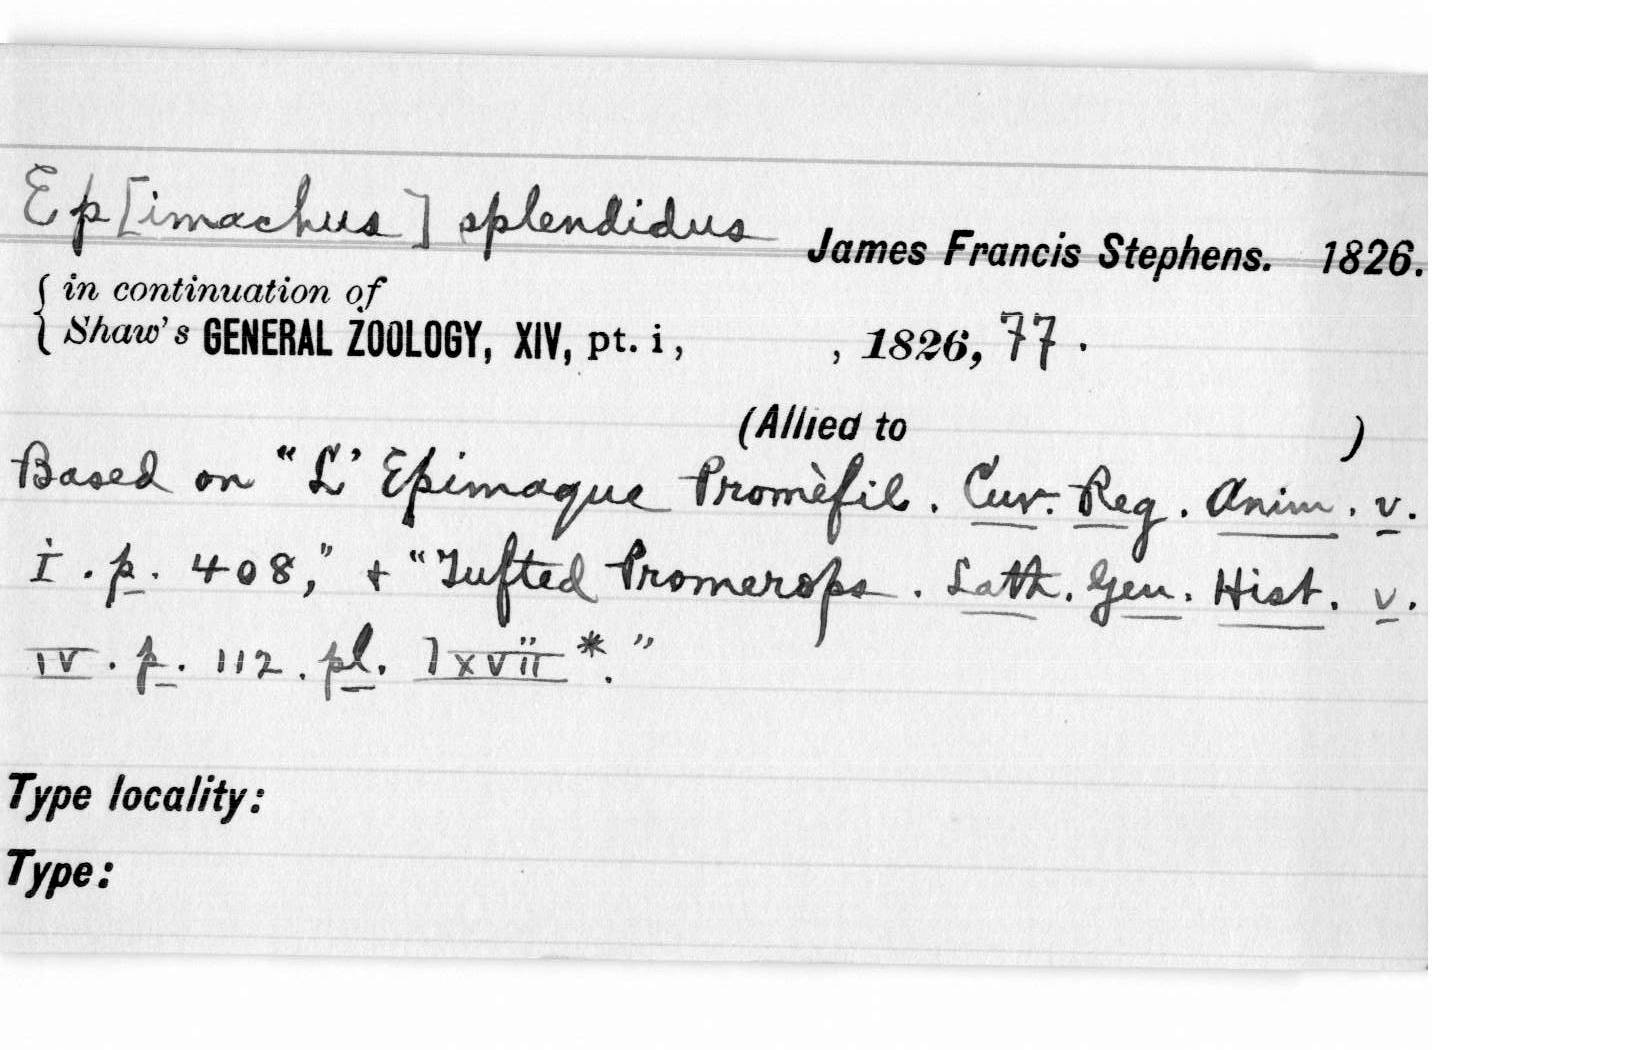 Ep[imachus] splendidus James Francis Stephens. 1826.
{ in continuation of
Shaw's GENERAL ZOOLOGY, XIV, pt. i, , 1826, 77.
(Allied to )
Based on "L' Epimaque Promèfil. Cuv. Reg. Anim. v.
i. p. 408," + "Tufted Promerops. Lath. Gen. Hist. v.
iv. p. 112. pl. lxvii*."
Type locality:
Type: